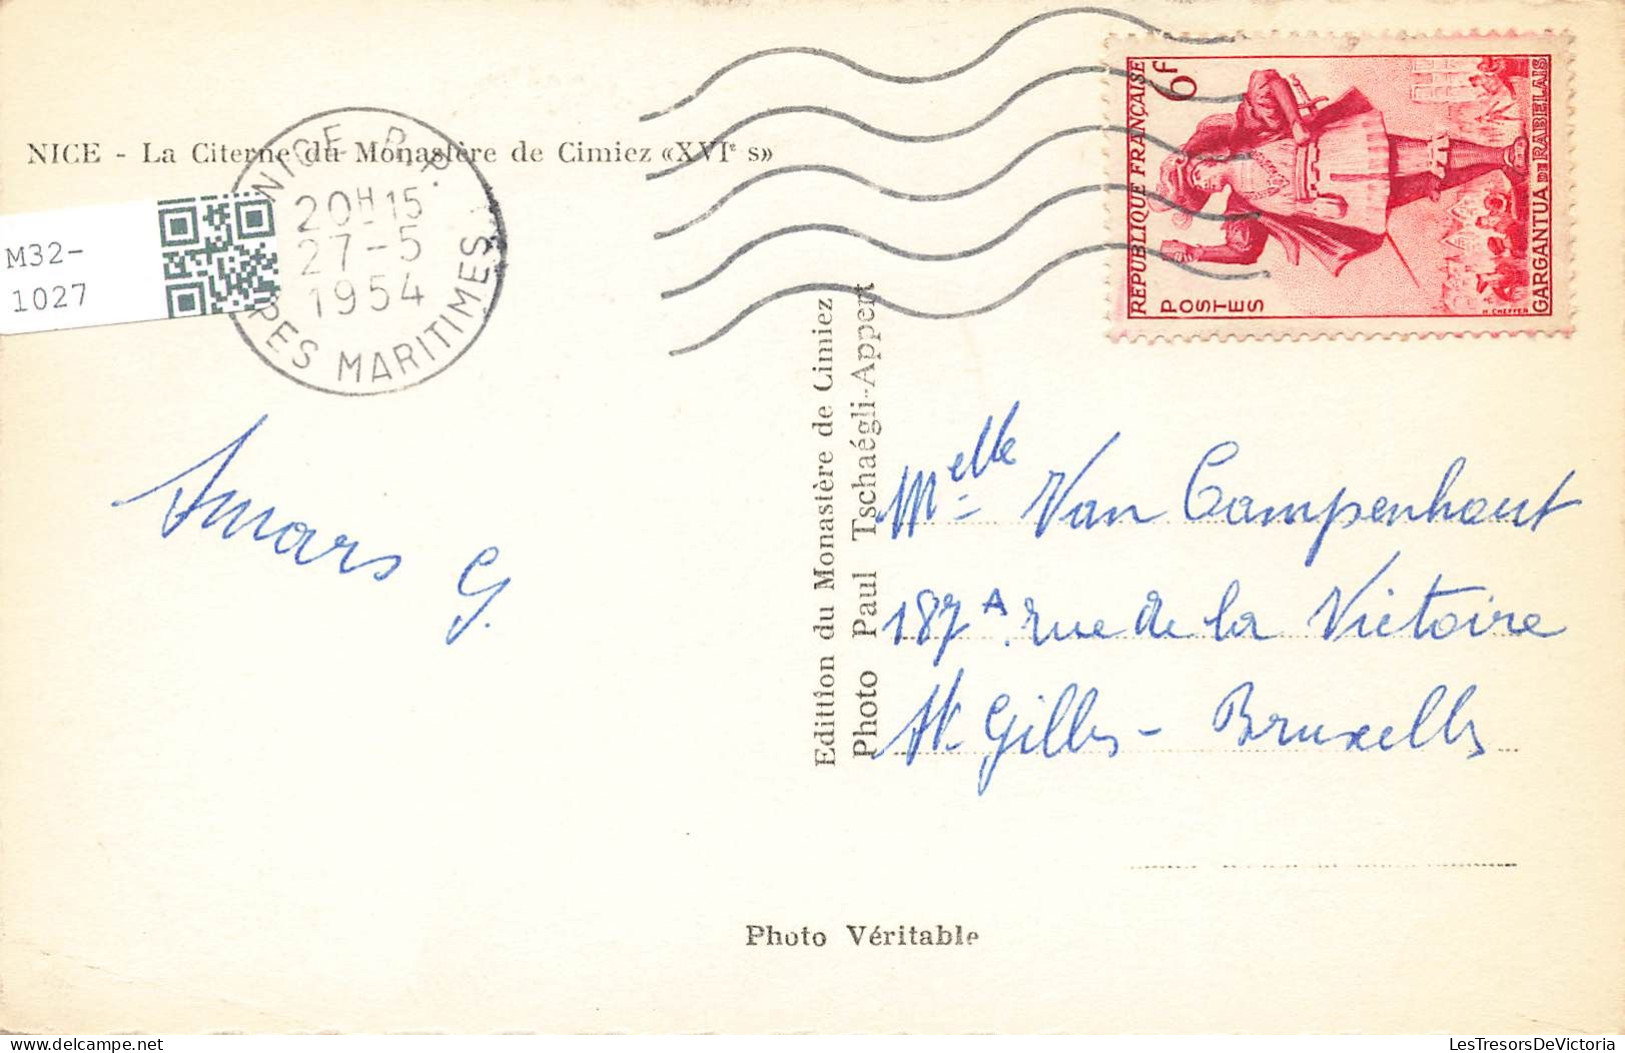 NICE - La Citerne du Monastère de Cimiez «XVIe s»
NICE R.P.
20H15
27-5
1954
PES MARITIMES
M32-
1027
REPUBLIQUE FRANÇAISE
6F
POSTES
GARGANTUA DE RABELAIS
H. CHEFFER
Edittion du Monastère de Cimiez
Photo Paul Tschaégli-Appert
Melle Van Campenhout
187A rue de la Victoire
St Gilles - Bruxelles
G.
Photo Véritable
LesTresorsDeVictoria